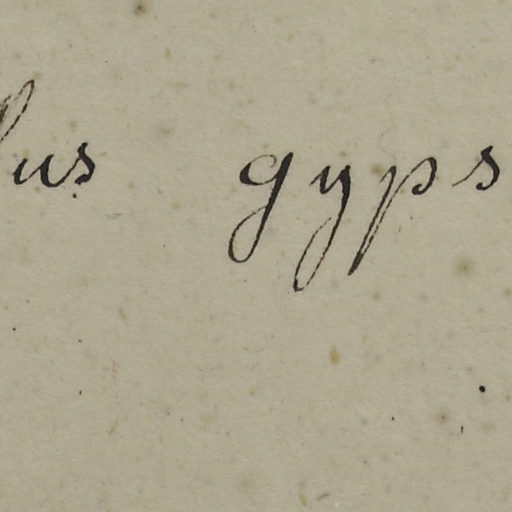 lus gyps